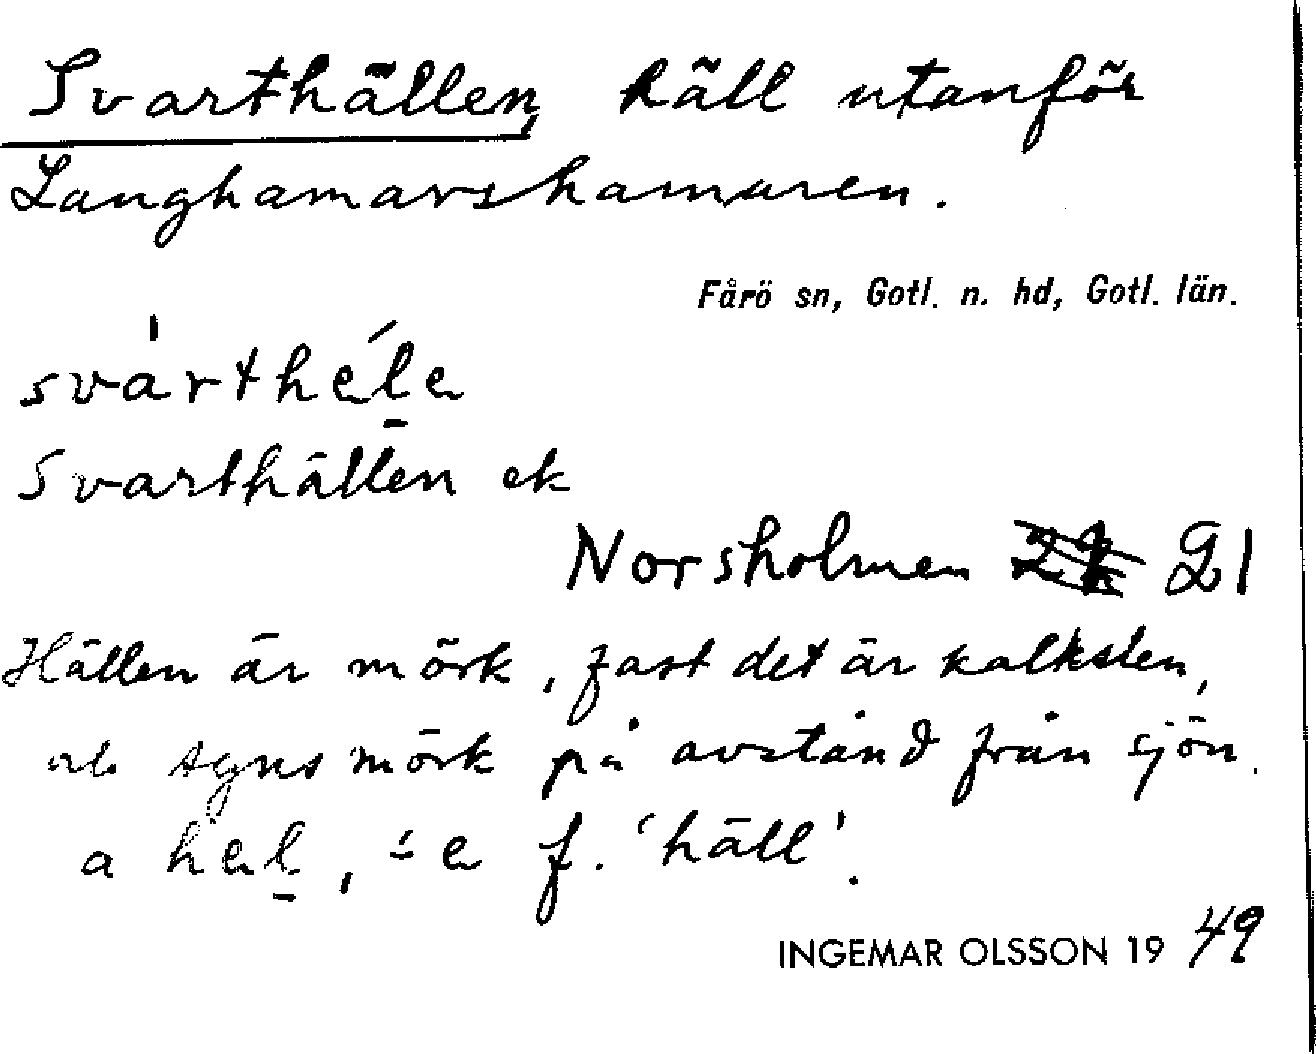 Svarthällen, häll utanför
Langhamarshammaren.
Fårö sn, Gotl. n. hd, Gotl. län.
svàrthéḻa
Svarthällen ek
Norsholmen 21
Hällen är mörk, fast det är kalksten,
och synes mörk på avstånd från sjön.
a hɐḻ, -́a f. 'häll'.
INGEMAR OLSSON 1949